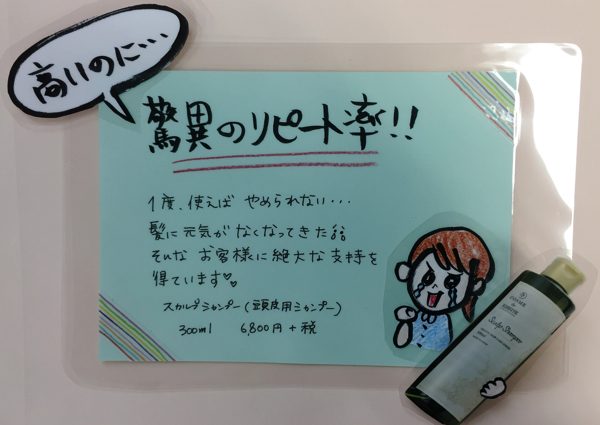 高いのに・・・
驚異のリピート率!!
1度、使えば やめられない・・・
髪に元気がなくなってきた
そんな お客様に絶大な支持を
得ています♡♡
スカルプシャンプー(頭皮用シャンプー)
300ml 6,800円+税
Scalp Shampoo